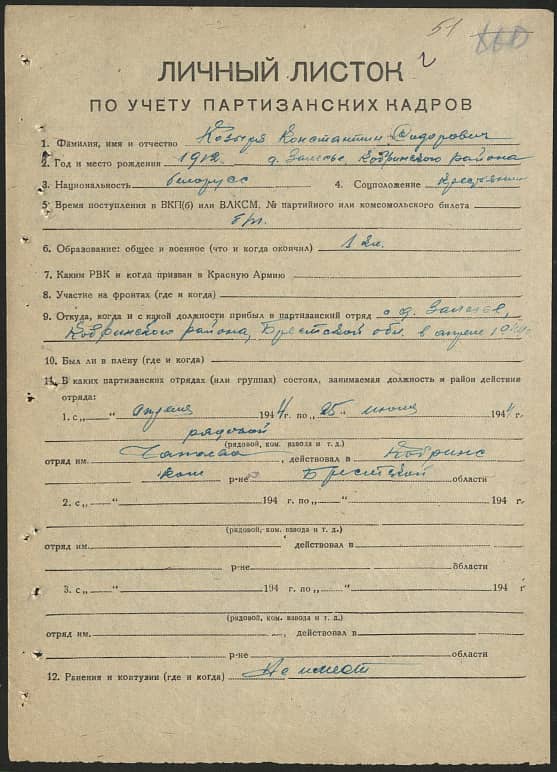 51
ЛИЧНЫЙ ЛИСТОК
ПО УЧЕТУ ПАРТИЗАНСКИХ КАДРОВ
1. Фамилия, имя и отчество Козыря Константин Сидорович
2. Год и место рождения 1912 д. Залесье, Кобринского района
3. Национальность белорус 4. Соцположение Крестьянин
5. Время поступления в ВКП(б) или ВЛКСМ, № партийного или комсомольского билета
б/п.
6. Образование: общее и военное (что и когда окончил) 1 кл.
7. Каким РВК и когда призван в Красную Армию
8. Участие на фронтах (где и когда)
9. Откуда, когда и с какой должности прибыл в партизанский отряд с д. Залесье,
Кобринского района, Брестской обл. в апреле 1944г.
10. Был ли в плену (где и когда)
11. В каких партизанских отрядах (или группах) состоял, занимаемая должность и район действия
отряда:
1. с „ “ апреля 1944 г. по „25“ июня 1944 г.
рядовой
(рядовой, ком. взвода и т. д.)
отряд им. Чапаева, действовал в Кобринс
ком р-не Брестской области
2. с „ “ 194 г. по „ “ 194 г.
(рядовой, ком. взвода и т. д.)
отряд им. , действовал в
р-не области
3. с „ “ 194 г. по „ “ 194 г
(рядовой, ком. взвода и т. д.)
отряд им. , действовал в
р-не области
12. Ранения и контузии (где и когда) Не имеет